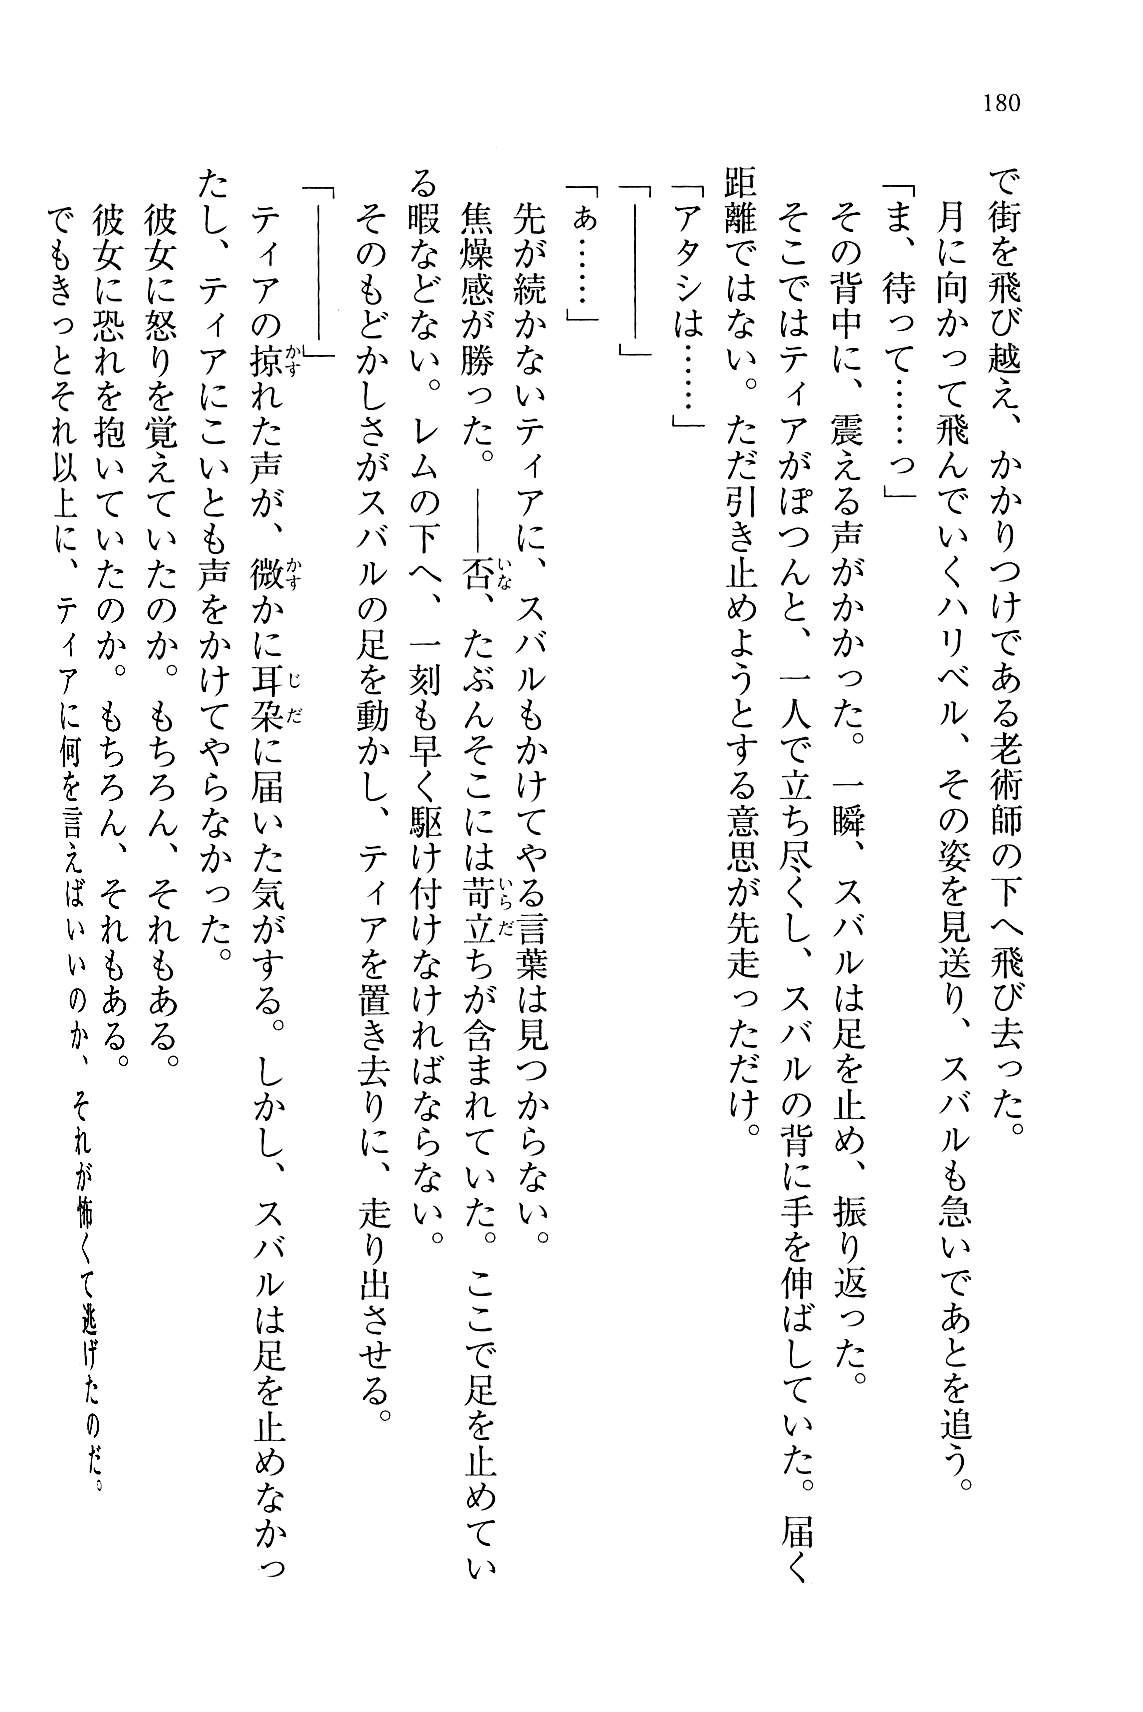 180
で街を飛び越え、かかりつけである老術師の下へ飛び去った。
月に向かって飛んでいくハリベル、その姿を見送り、スバルも急いであとを追う。
「ま、待って……っ」
その背中に、震える声がかかった。一瞬、スバルは足を止め、振り返った。
そこではティアがぽつんと、一人で立ち尽くし、スバルの背に手を伸ばしていた。届く
距離ではない。ただ引き止めようとする意思が先走っただけ。
「アタシは……」
「――――」
「ぁ……」
先が続かないティアに、スバルもかけてやる言葉は見つからない。
焦燥感が勝った。――否、たぶんそこには苛立ちが含まれていた。ここで足を止めてい
る暇などない。レムの下へ、一刻も早く駆け付けなければならない。
そのもどかしさがスバルの足を動かし、ティアを置き去りに、走り出させる。
「――――」
ティアの掠れた声が、微かに耳朶に届いた気がする。しかし、スバルは足を止めなかっ
たし、ティアにこいとも声をかけてやらなかった。
彼女に怒りを覚えていたのか。もちろん、それもある。
彼女に恐れを抱いていたのか。もちろん、それもある。
でもきっとそれ以上に、ティアに何を言えばいいのか、それが怖くて逃げたのだ。